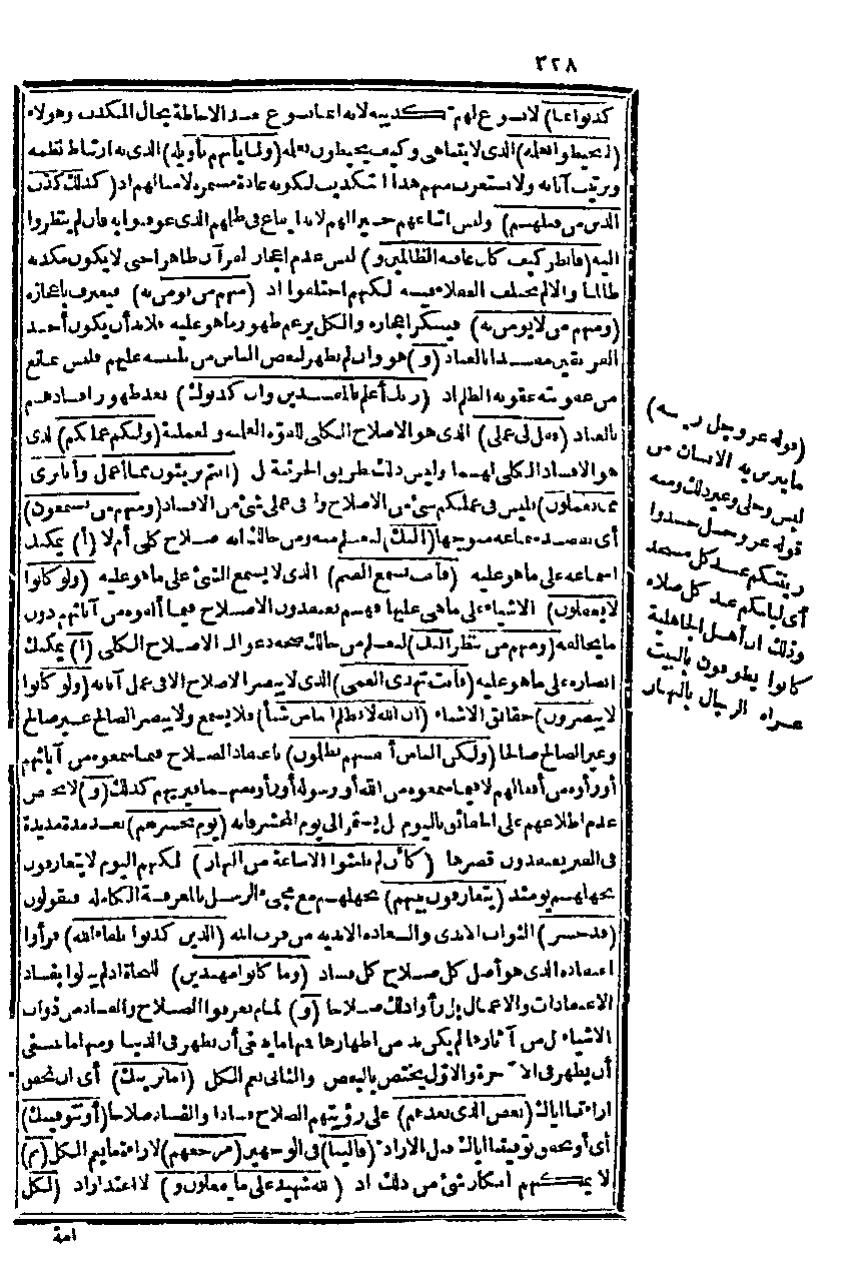 ٣٢٨
كذبوا بما) لا يسوغ لهم تكذيبه لأنه انما يسوغ عند الاحاطة بحال المكذب وهؤلاء
(لم يحيطوا بعلمه) الذى لا يتناهى وكيف يحيطون بعلمه (ولما يأتهم تأويله) الذى به ارتباط نظمه
وترتيب آياته ولا يستغرب منهم هذا التكذيب لكونه عادة مستمرة لامثالهم اذ (كذلك كذب
الذين من قبلهم) وليس اتباعهم خيرا لهم لانه اتباع فى ظلمهم الذى عوقبوا به فان لم ينظروا
اليه (فانظر كيف كان عاقبة الظالمين و) ليس عدم اعجاز القرآن ظاهرا حتى لا يكون مكذبه
ظالما والا لم يختلف العقلاء فيه لكنهم اختلفوا اذ (منهم من يؤمن به) فيعترف باعجازه
(ومنهم من لا يؤمن به) فينكر اعجازه والكل يزعم ظهور ما هو عليه فلا بد أن يكون أحد
الفريقين مفسدا بالعناد (و) هو وان لم يظهر لبعض الناس من تلبيسه عليهم فليس بمانع
من عقوبته عقوبة الظلم اذ (ربك أعلم بالمفسدين وان كذبوك) بعد ظهور افسادهم
بالعناد (فقل لى عملى) الذى هو الاصلاح الكلى للقوة العلمية والعملية (ولكم عملكم) الذى
هو الافساد الكلى لهما وليس ذلك بطريق الجزئية بل (أنتم بريئون مما أعمل وأنا برىء
مما تعملون) فليس فى عملكم شئ من الاصلاح ولا فى عملى شئ من الافساد (ومنهم من يستمعون)
أى يقصد سماعه متوجها (اليك) ليعلم منه ومن حالك انه صلاح كلى أم لا (أ) يمكنك
اسماعه على ما هو عليه (فأنت تسمع الصم) الذى لا يسمع الشئ على ما هو عليه (ولو كانوا
لا يعقلون) الاشياء على ما هى عليها فهم يعتقدون الاصلاح فيما ألفوه من آبائهم دون
ما يخالفه (ومنهم من ينظر اليك) ليعلم من حالك صحة دعواك الاصلاح الكلى (أ) يمكنك
ابصاره على ما هو عليه (فأنت تهدى العمى) الذى لا يبصر الاصلاح الا فى عمل آبائه (ولو كانوا
لا يبصرون) حقائق الاشياء (ان الله لا يظلم الناس شيأ) فلا يسمع ولا يبصر الصالح غير صالح
وغير الصالح صالحا (ولكن الناس أنفسهم يظلمون) باعتقاد الصلاح فيما سمعوه من آبائهم
أو رأوه من أفعالهم لا فيما سمعوه من الله أو رسوله أو رأوه من كذلك (و) لا يختص
عدم اطلاعهم على الحقائق باليوم بل يستمر الى يوم المحشر فانه (يوم نحشرهم) بعد مدة مديدة
فى القبر يعتقدون قصرها (كأن لم يلبثوا الا ساعة من النهار) لكنهم اليوم لا يتعارفون
بجهلهم يومئذ (يتعارفون بينهم) بجهلهم مع مجىء الرسل بالمعرفة الكاملة فيقولون
(قد خسر) الثواب الابدى والسعادة الابدية من قرب الله (الذين كذبوا بلقاء الله) فرأوا
اعتقاده الذى هو أصل كل صلاح كل فساد (وما كانوا مهتدين) للنجاة اذ لم يبالوا بفساد
الاعتقادات والاعمال بل رأوا ذلك صلاحا (و) لما لم يعرفوا الصلاح والفساد من ذوات
الاشياء بل من آثارها لم يكن بد من اظهارها فمنها ما ينبغى أن يظهر فى الدنيا ومنها ما ينبغى
أن يظهر فى الآخرة والاول يختص بالبعض والثانى يعم الكل (اما نرينك) أى ان نحقق
اراءتنا اياك (بعض الذى نعدهم) على رؤيتهم الصلاح فسادا والفساد صلاحا (أو نتوفينك)
أى أو نحقق توفيتنا اياك قبل الاراءة (فالينا) فى الوجهين (مرجعهم) لاراءة ما يعم الكل (ثم)
لا يمكنهم انكار شئ من ذلك اذ (الله شهيد على ما يفعلون و) لا اعتذار اذ (لكل
امة
(قوله عز وجل ريشه)
ما يتزين به الانسان من
لبس وحلى وغير ذلك ومنه
قوله عز وجل خذوا
زينتكم عند كل مسجد
أى لباسكم عند كل صلاة
وذلك ان أهل الجاهلية
كانوا يطوفون بالبيت
عراة الرجال بالنهار